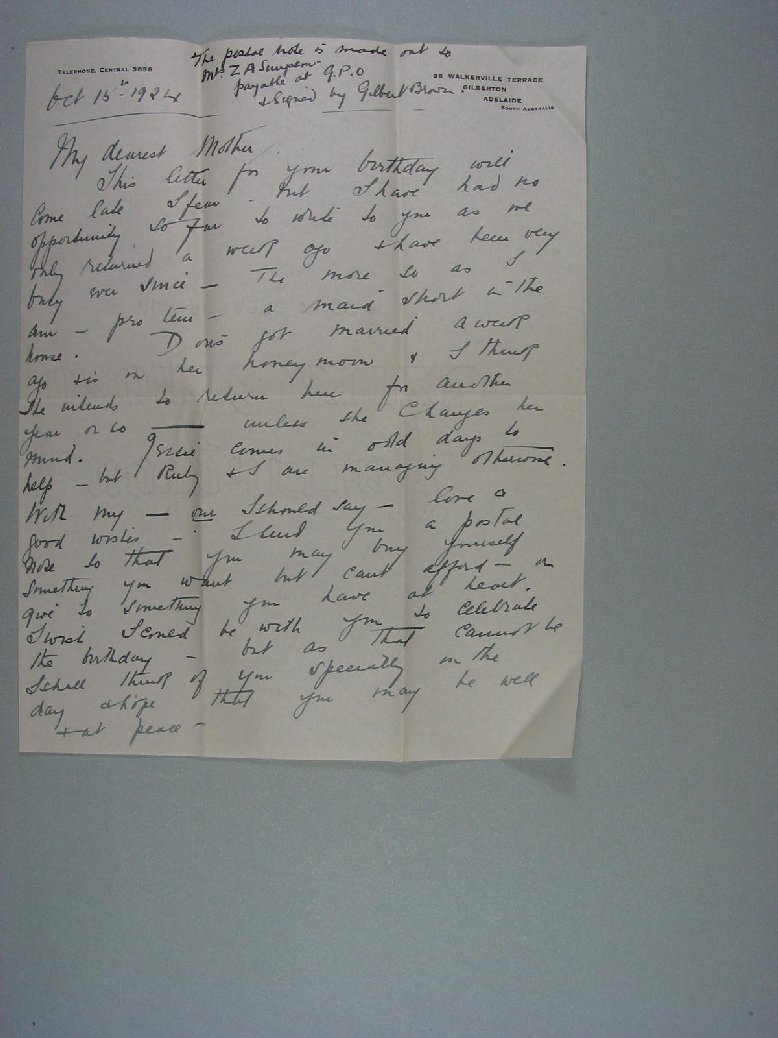 The postal note is made out to
Mrs Z A Simpson
payable at G.P.O
& signed by Gilbert Brown.
TELEPHONE, CENTRAL
35 WALKERVILLE TERRACE
GILBERTON
ADELAIDE
SOUTH AUSTRALIA
Oct 15th 1924
My dearest Mother
This letter for your birthday will
come late I fear - but I have had no
opportunity so far to write to you as we
only returned a week ago & have been very
busy ever since - The more so as I
am - pro tem - a maid short in the
house. Doris got married a week
ago & is on her honeymoon & I think
she intends to return here for another
year or so unless she changes her
mind. Essie comes in odd days to
help - but Ruby & I are managing otherwise.
With my - our I should say - love &
good wishes - I send you a postal
note so that you may buy yourself
something you want but cant afford - or
give to something you have at heart.
I wish I could be with you to celebrate
the birthday - but as that cannot be
I shall think of you specially on the
day & hope that you may be well
& at peace -